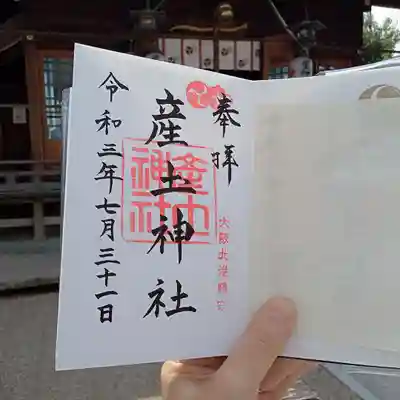 奉拝
産土神社
産土神社
令和三年七月三十一日